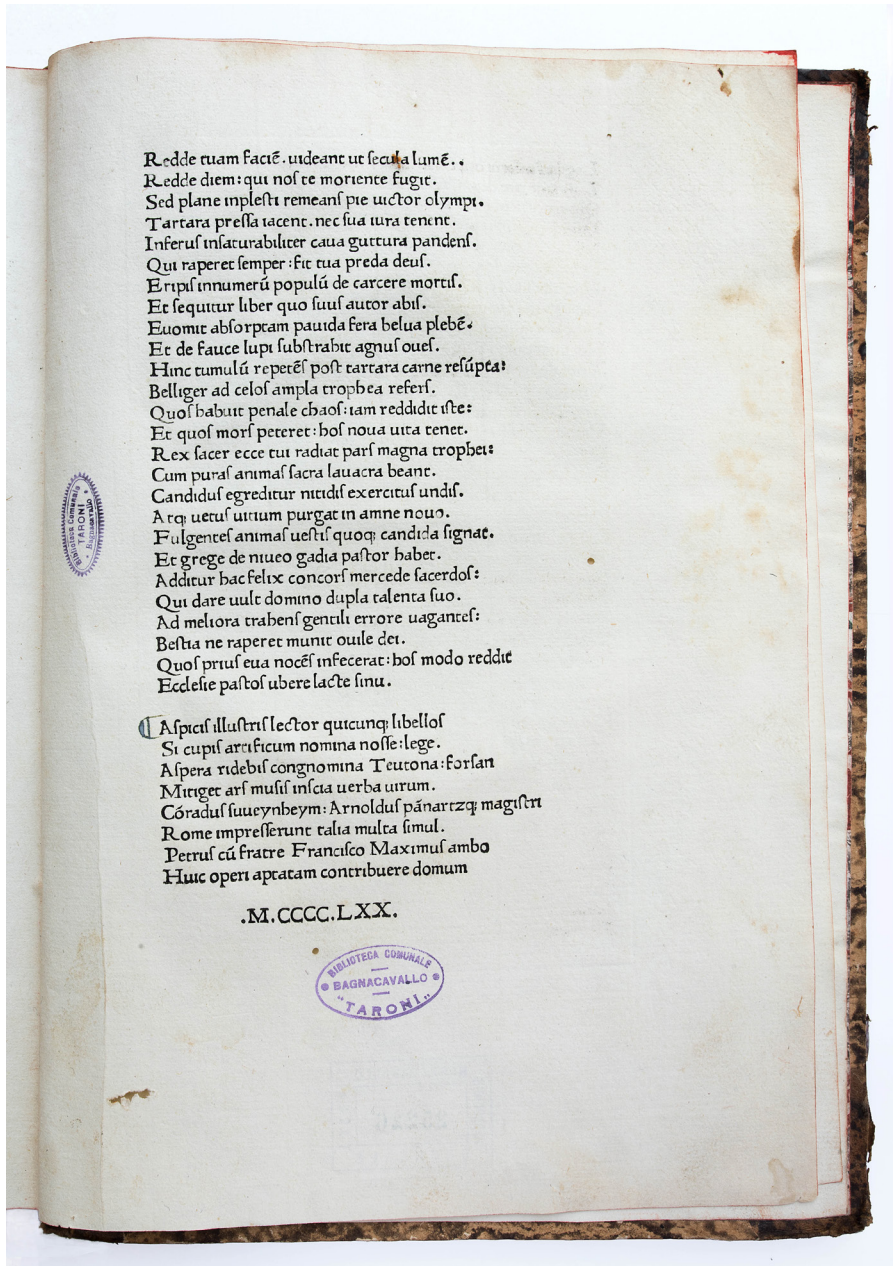 Redde tuam faciē. uideant ut secula lumē..
Redde diem: qui nos te moriente fugit.
Sed plane inplesti remeans pie uictor olympi.
Tartara pressa iacent. nec sua iura tenent.
Inferus insaturabiliter caua guttura pandens.
Qui raperet semper: fit tua preda deus.
Eripis innumerū populū de carcere mortis.
Et sequitur liber quo suus autor abis.
Euomit absorptam pauida fera belua plebē.
Et de fauce lupi substrahit agnus oues.
Hinc tumulū repetēs post tartara carne resūpta:
Belliger ad celos ampla trophea refers.
Quos habuit penale chaos: iam reddidit iste:
Et quos mors peteret: hos noua uita tenet.
Rex sacer ecce tui radiat pars magna trophei:
Cum puras animas sacra lauacra beant.
Candidus egreditur nitidis exercitus undis.
Atq; uetus uitium purgat in amne nouo.
Fulgentes animas uestis quoq; candida signat.
Et grege de niueo gadia pastor habet.
Additur hac felix concors mercede sacerdos:
Qui dare uult domino dupla talenta suo.
Ad meliora trahens gentili errore uagantes:
Bestia ne raperet munit ouile dei.
Quos prius eua nocēs infecerat: hos modo reddit
Ecclesie pastos ubere lacte sinu.
Aspicis illustris lector quicunq; libellos
Si cupis artificum nomina nosse: lege.
Aspera ridebis congnomina Teutona: forsan
Mitiget ars musis inscia uerba uirum.
Cōradus suueynheym: Arnoldus pānartzq; magistri
Rome impresserunt talia multa simul.
Petrus cū fratre Francisco Maximus ambo
Huic operi aptatam contribuere domum
.M.CCCC.LXX.
BIBLIOTECA COMUNALE
BAGNACAVALLO
"TARONI"
Biblioteca Comunale
TARONI
Bagnacavallo